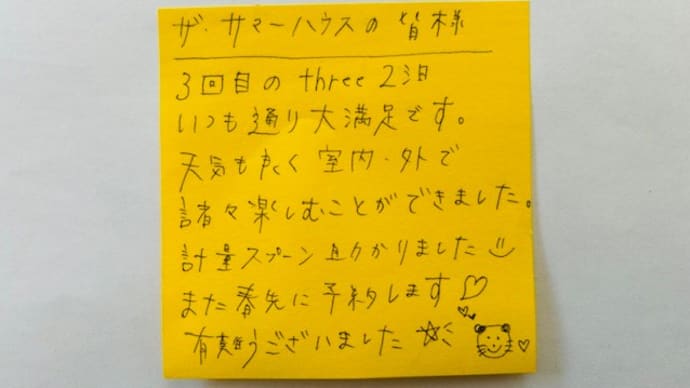 ザ・サマーハウスの 皆様
3回目の three 2泊
いつも通り大満足です。
天気も良く 室内・外で
諸々楽しむことができました。
計量スプーン 助かりました
また春先に予約します♡
有難うございました☆